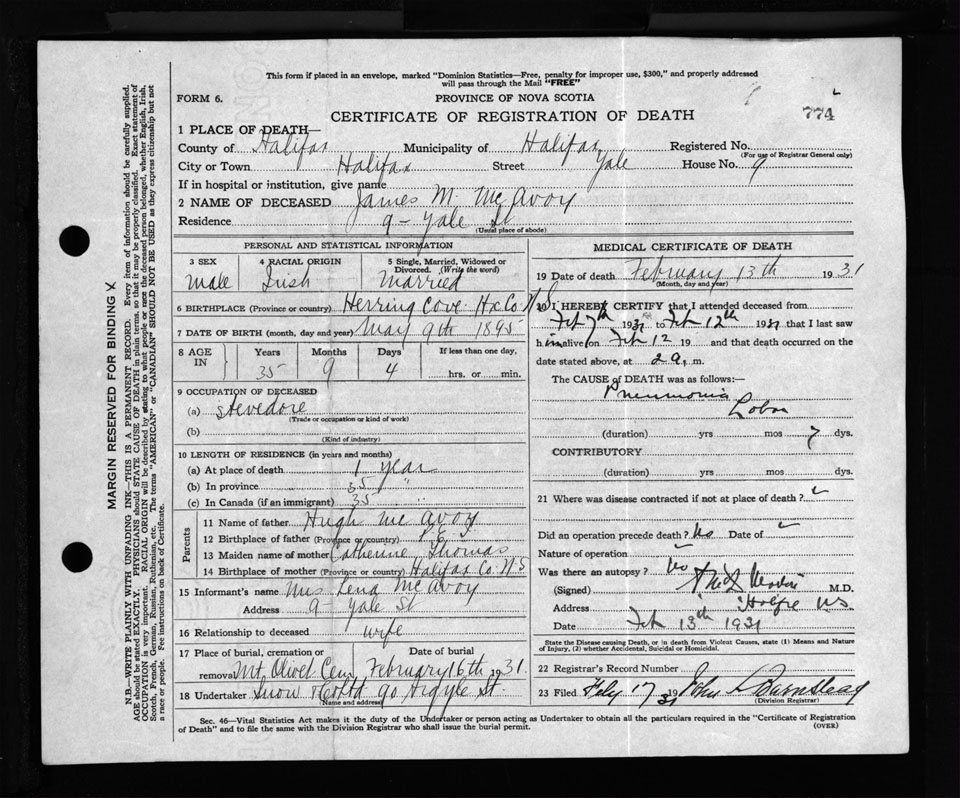 This form if placed in an envelope, marked "Dominion Statistics—Free, penalty for improper use, $300," and properly addressed
will pass through the Mail "FREE"
FORM 6.
PROVINCE OF NOVA SCOTIA
774
CERTIFICATE OF REGISTRATION OF DEATH
1 PLACE OF DEATH—
County of Halifax Municipality of Halifax Registered No.
(For use of Registrar General only)
City or Town Halifax Street Yale House No. 9
If in hospital or institution, give name
2 NAME OF DECEASED James M. McAvoy
Residence 9 - Yale St
(Usual place of abode)
PERSONAL AND STATISTICAL INFORMATION
3 SEX 4 RACIAL ORIGIN 5 Single, Married, Widowed or
Divorced. (Write the word)
Male Irish Married
6 BIRTHPLACE (Province or country) Herring Cove Hx Co N.S
7 DATE OF BIRTH (month, day and year) May 9th 1895
8 AGE IN Years Months Days If less than one day,
35 9 4 hrs. or min.
9 OCCUPATION OF DECEASED
(a) Stevedore
(Trade or occupation or kind of work)
(b)
(Kind of industry)
10 LENGTH OF RESIDENCE (in years and months)
(a) At place of death 1 year
(b) In province 35 "
(c) In Canada (if an immigrant) 35 "
Parents
11 Name of father Hugh McAvoy
12 Birthplace of father (Province or country)
13 Maiden name of mother Catherine Thomas
14 Birthplace of mother (Province or country) Halifax Co. N.S
15 Informant's name Mrs Lena McAvoy
Address 9 - Yale St
16 Relationship to deceased wife
17 Place of burial, cremation or removal Date of burial
Mt Olivet Cem February 16th 1931.
18 Undertaker Snow & Co Ltd 90 Argyle St.
(Name and address)
MEDICAL CERTIFICATE OF DEATH
19 Date of death February 13th 1931
(Month, day and year)
20 I HEREBY CERTIFY that I attended deceased from
Feb 7th 1931 to Feb 12th 1931 that I last saw
him alive on Feb 12 19 and that death occurred on the
date stated above, at 2 a. m.
The CAUSE of DEATH was as follows:—
Pneumonia
Lobar
(duration) yrs mos 7 dys.
CONTRIBUTORY
(duration) yrs mos dys.
21 Where was disease contracted if not at place of death?
Did an operation precede death? No Date of
Nature of operation
Was there an autopsy? No
(Signed) M.D.
Address Halifax NS
Date Feb 13th 1931
State the Disease causing Death, or in death from Violent Causes, state (1) Means and Nature
of Injury, (2) whether Accidental, Suicidal or Homicidal.
22 Registrar's Record Number
23 Filed Feby 17 1931 John Burnstead
(Division Registrar)
Sec. 46—Vital Statistics Act makes it the duty of the Undertaker or person acting as Undertaker to obtain all the particulars required in the "Certificate of Registration
of Death" and to file the same with the Division Registrar who shall issue the burial permit.
(OVER)
MARGIN RESERVED FOR BINDING
N.B.—WRITE PLAINLY WITH UNFADING INK—THIS IS A PERMANENT RECORD. Every item of information should be carefully supplied.
AGE should be stated EXACTLY. PHYSICIANS should STATE CAUSE OF DEATH in plain terms, so that it may be properly classified. Exact statement of
OCCUPATION is very important. RACIAL ORIGIN will be described by stating to what people or race the deceased person belonged, whether English, Irish,
Scotch, French, German, Russian, Ruthenian, etc. The terms "AMERICAN" or "CANADIAN" SHOULD NOT BE USED as they express citizenship but not
a race or people. Fee instructions on back of Certificate.